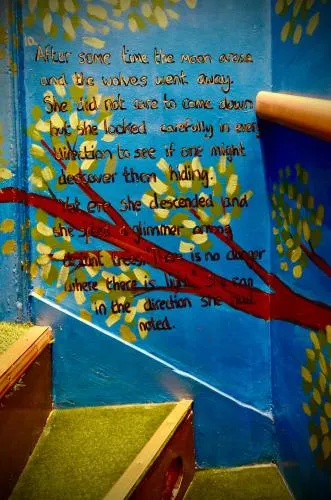 After some time the moon arose
and the wolves went away.
She did not care to come down
but she looked carefully in every
direction to see if one might
descover then hiding.
Yet ere she descended and
she spied a glimmer among
distant trees. There is no danger
where there is light. She ran
in the direction she had
noted.